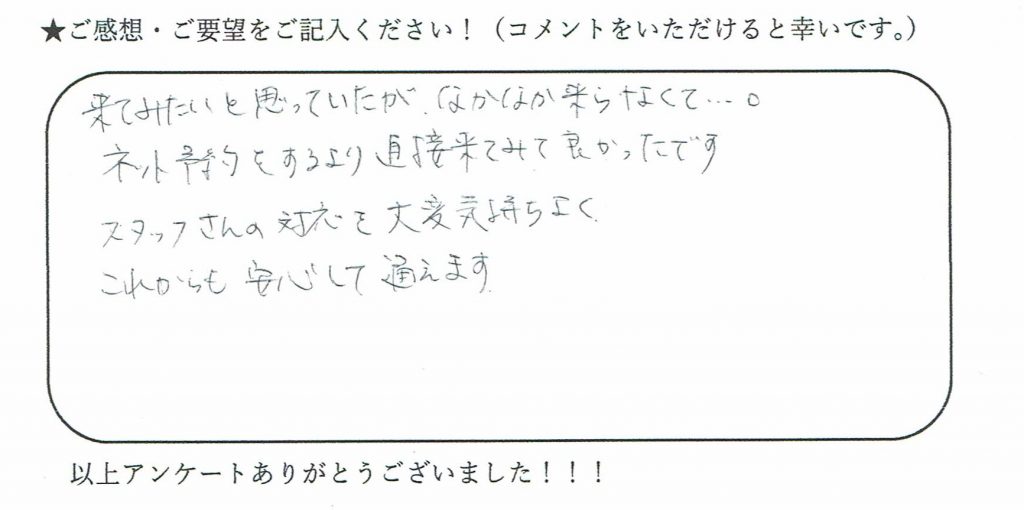 ★ご感想・ご要望をご記入ください！（コメントをいただけると幸いです。）
来てみたいと思っていたが、なかなか来らなくて…。
ネット予約をするより直接来てみて良かったです
スタッフさんの対応も大変気持ちよく
これからも安心して通えます
以上アンケートありがとうございました！！！